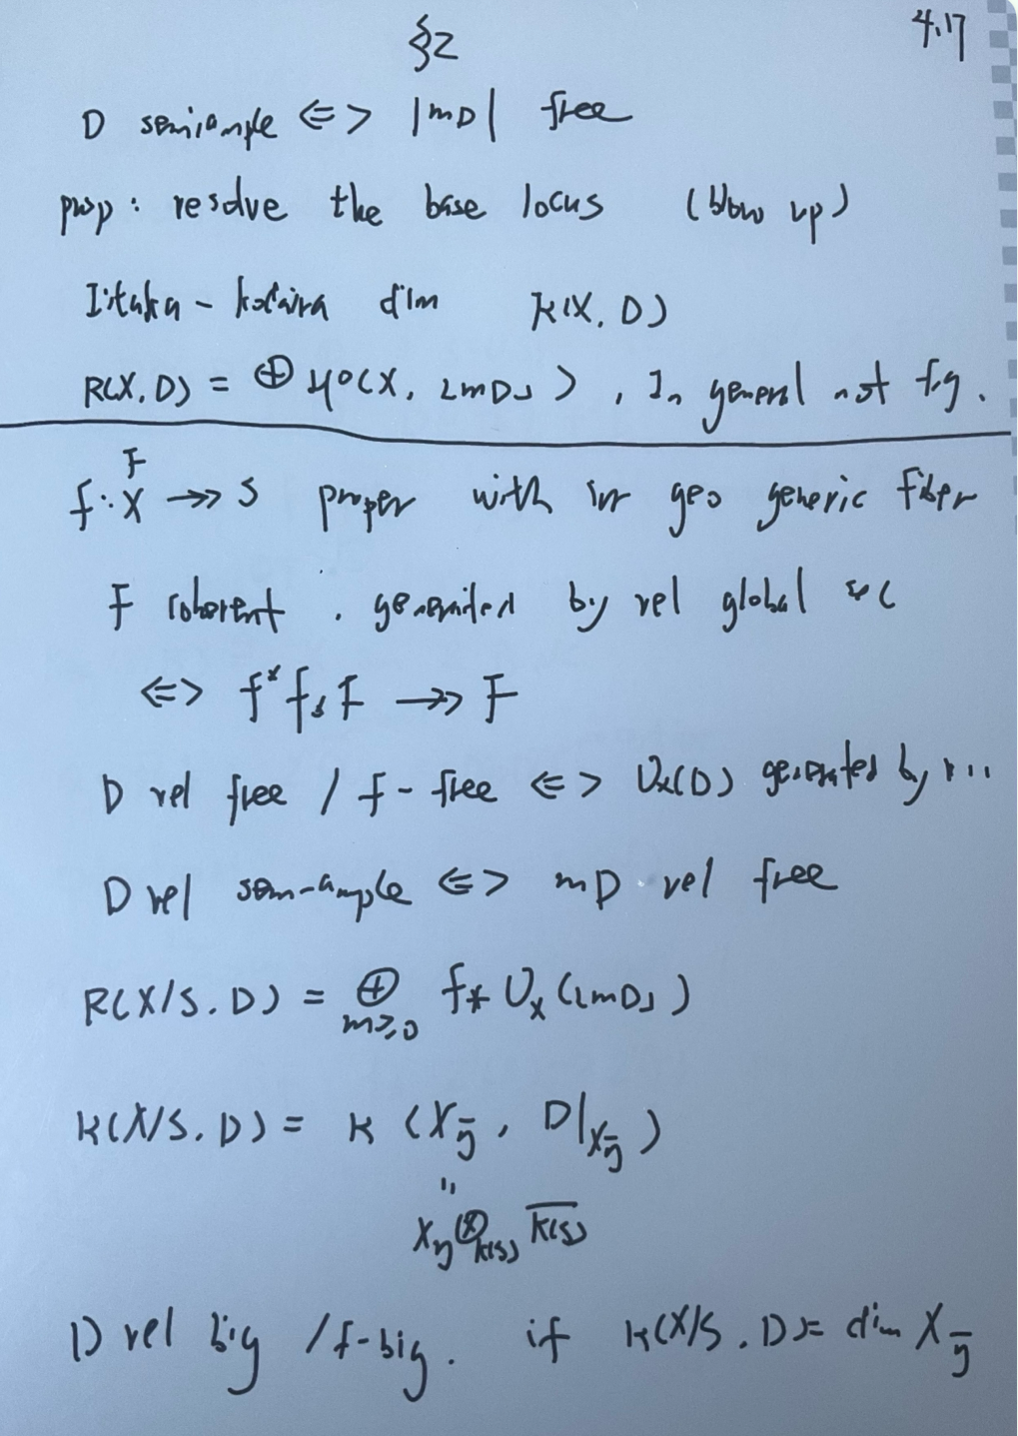 §2 4.17
D semiample <=> |mD| free
prop: resolve the base locus (blow up)
Iitaka - kodaira dim κ(X, D)
R(X, D) = ⊕ H⁰(X, ⌊mD⌋), In general not f.g.
F
f: X ↠ S proper with irr geo generic fiber
F coherent. generated by rel global sec
<=> f* f_* F ↠ F
D rel free / f-free <=> O_X(D) generated by r...
D rel sem-ample <=> mD rel free
R(X/S. D) = ⊕_{m≥0} f_* O_X(⌊mD⌋)
κ(X/S. D) = κ(X_η̄, D|_{X_η̄})
=
X_η ⊗_{k(S)} \overline{k(S)}
D rel big / f-big. if κ(X/S. D) = dim X_η̄